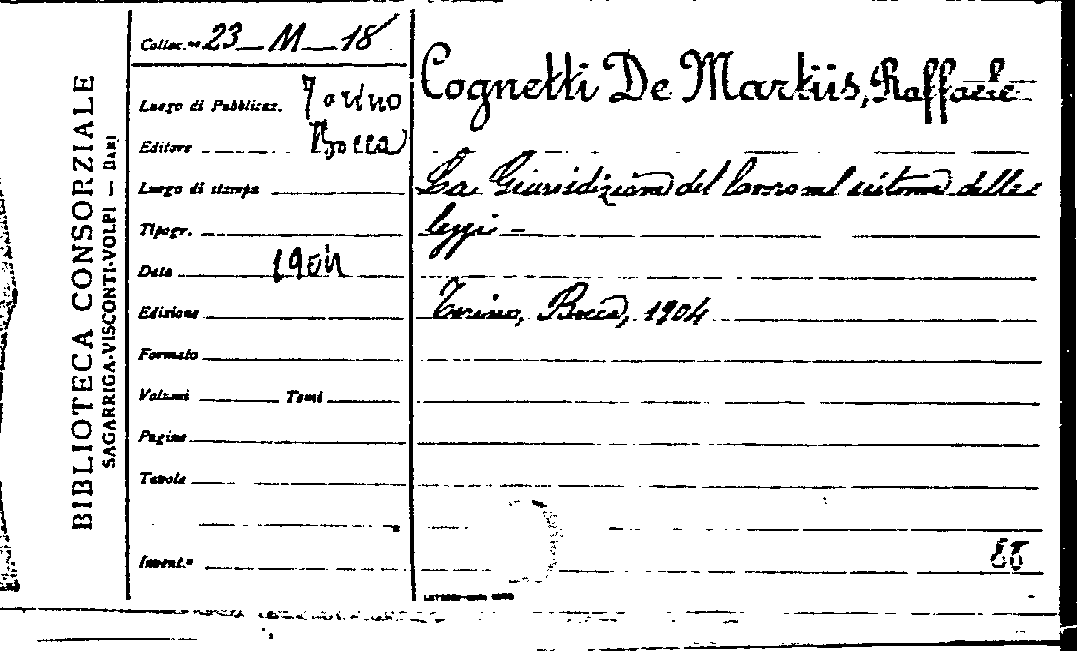 BIBLIOTECA CONSORZIALE
SAGARRIGA-VISCONTI-VOLPI — BARI
Collac.ne 23_M_18
Luogo di Pubblicaz. Torino
Editore Bocca
Luogo di stampa
Tipogr.
Data 1904
Edizione
Formato
Volumi Tomi
Pagine
Tavole
Invent.o
Cognetti De Martiis, Raffaele
La Giurisdizione del lavoro nel sistema delle
leggi -
Torino, Bocca, 1904